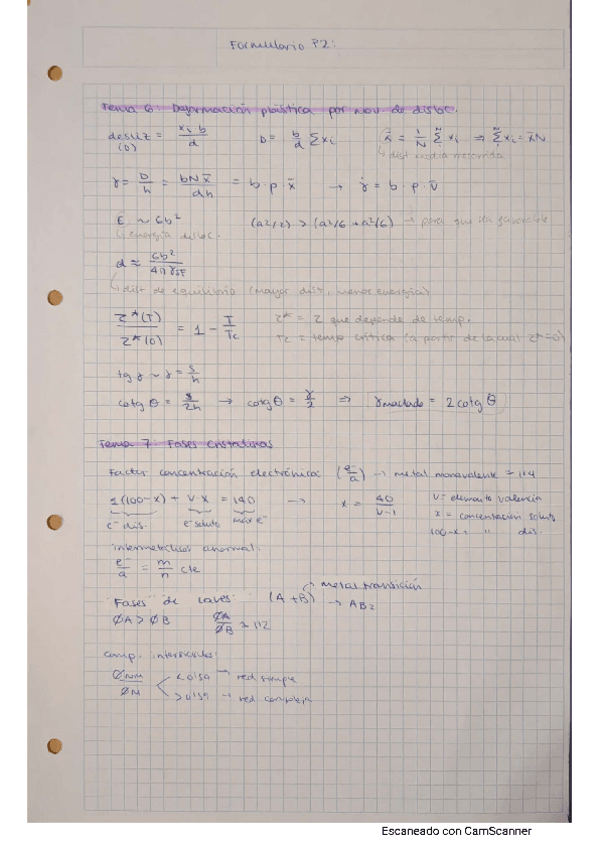 Formulario P2:
Tema 6: Deformación plástica por mov. de disloc.
desliz = xi · b / d    D = b/d Σxi    x̄ = 1/N Σxi ⇒ Σxi = x̄N
(D)    ↳ dist media recorrida
γ = D/h = bNx̄/dh = b · ρ · x̄ → γ̇ = b · ρ · v̄
E ~ Gb²    (a²/2) > (a²/6 + a²/6) → para que sea favorable
↳ energía disloc.
d ≈ Gb²/4πγSF
↳ dist de equilibrio (mayor dist, menos energía)
τ*(T)/τ*(0) = 1 - T/Tc    τ* = τ que depende de temp.
Tc = temp crítica (a partir de la cual τ*=0)
tg γ ~ γ = s/h
cotg θ = s/2h → cotg θ = γ/2 ⇒ γmaclado = 2 cotg θ
Tema 7: Fases Cristalinas
Factor concentración electrónica: (e⁻/a) → metal monovalente = 1'4
1(100-x) + V·x = 140 → x = 40/V-1    V = elemento valencia
e⁻ dis.    e⁻ soluto    máx e⁻    x = concentración soluto
100-x = " dis.
intermetálicos anormal:
e⁻/a = m/n cte
"Fases" de Laves: (A+B) → metal transición
→ AB2
ØA > ØB    ØA/ØB ≈ 1'2
comp. intersticiales:
ØNM/ØM < 0'59 → red simple
> 0'59 → red compleja
Escaneado con CamScanner